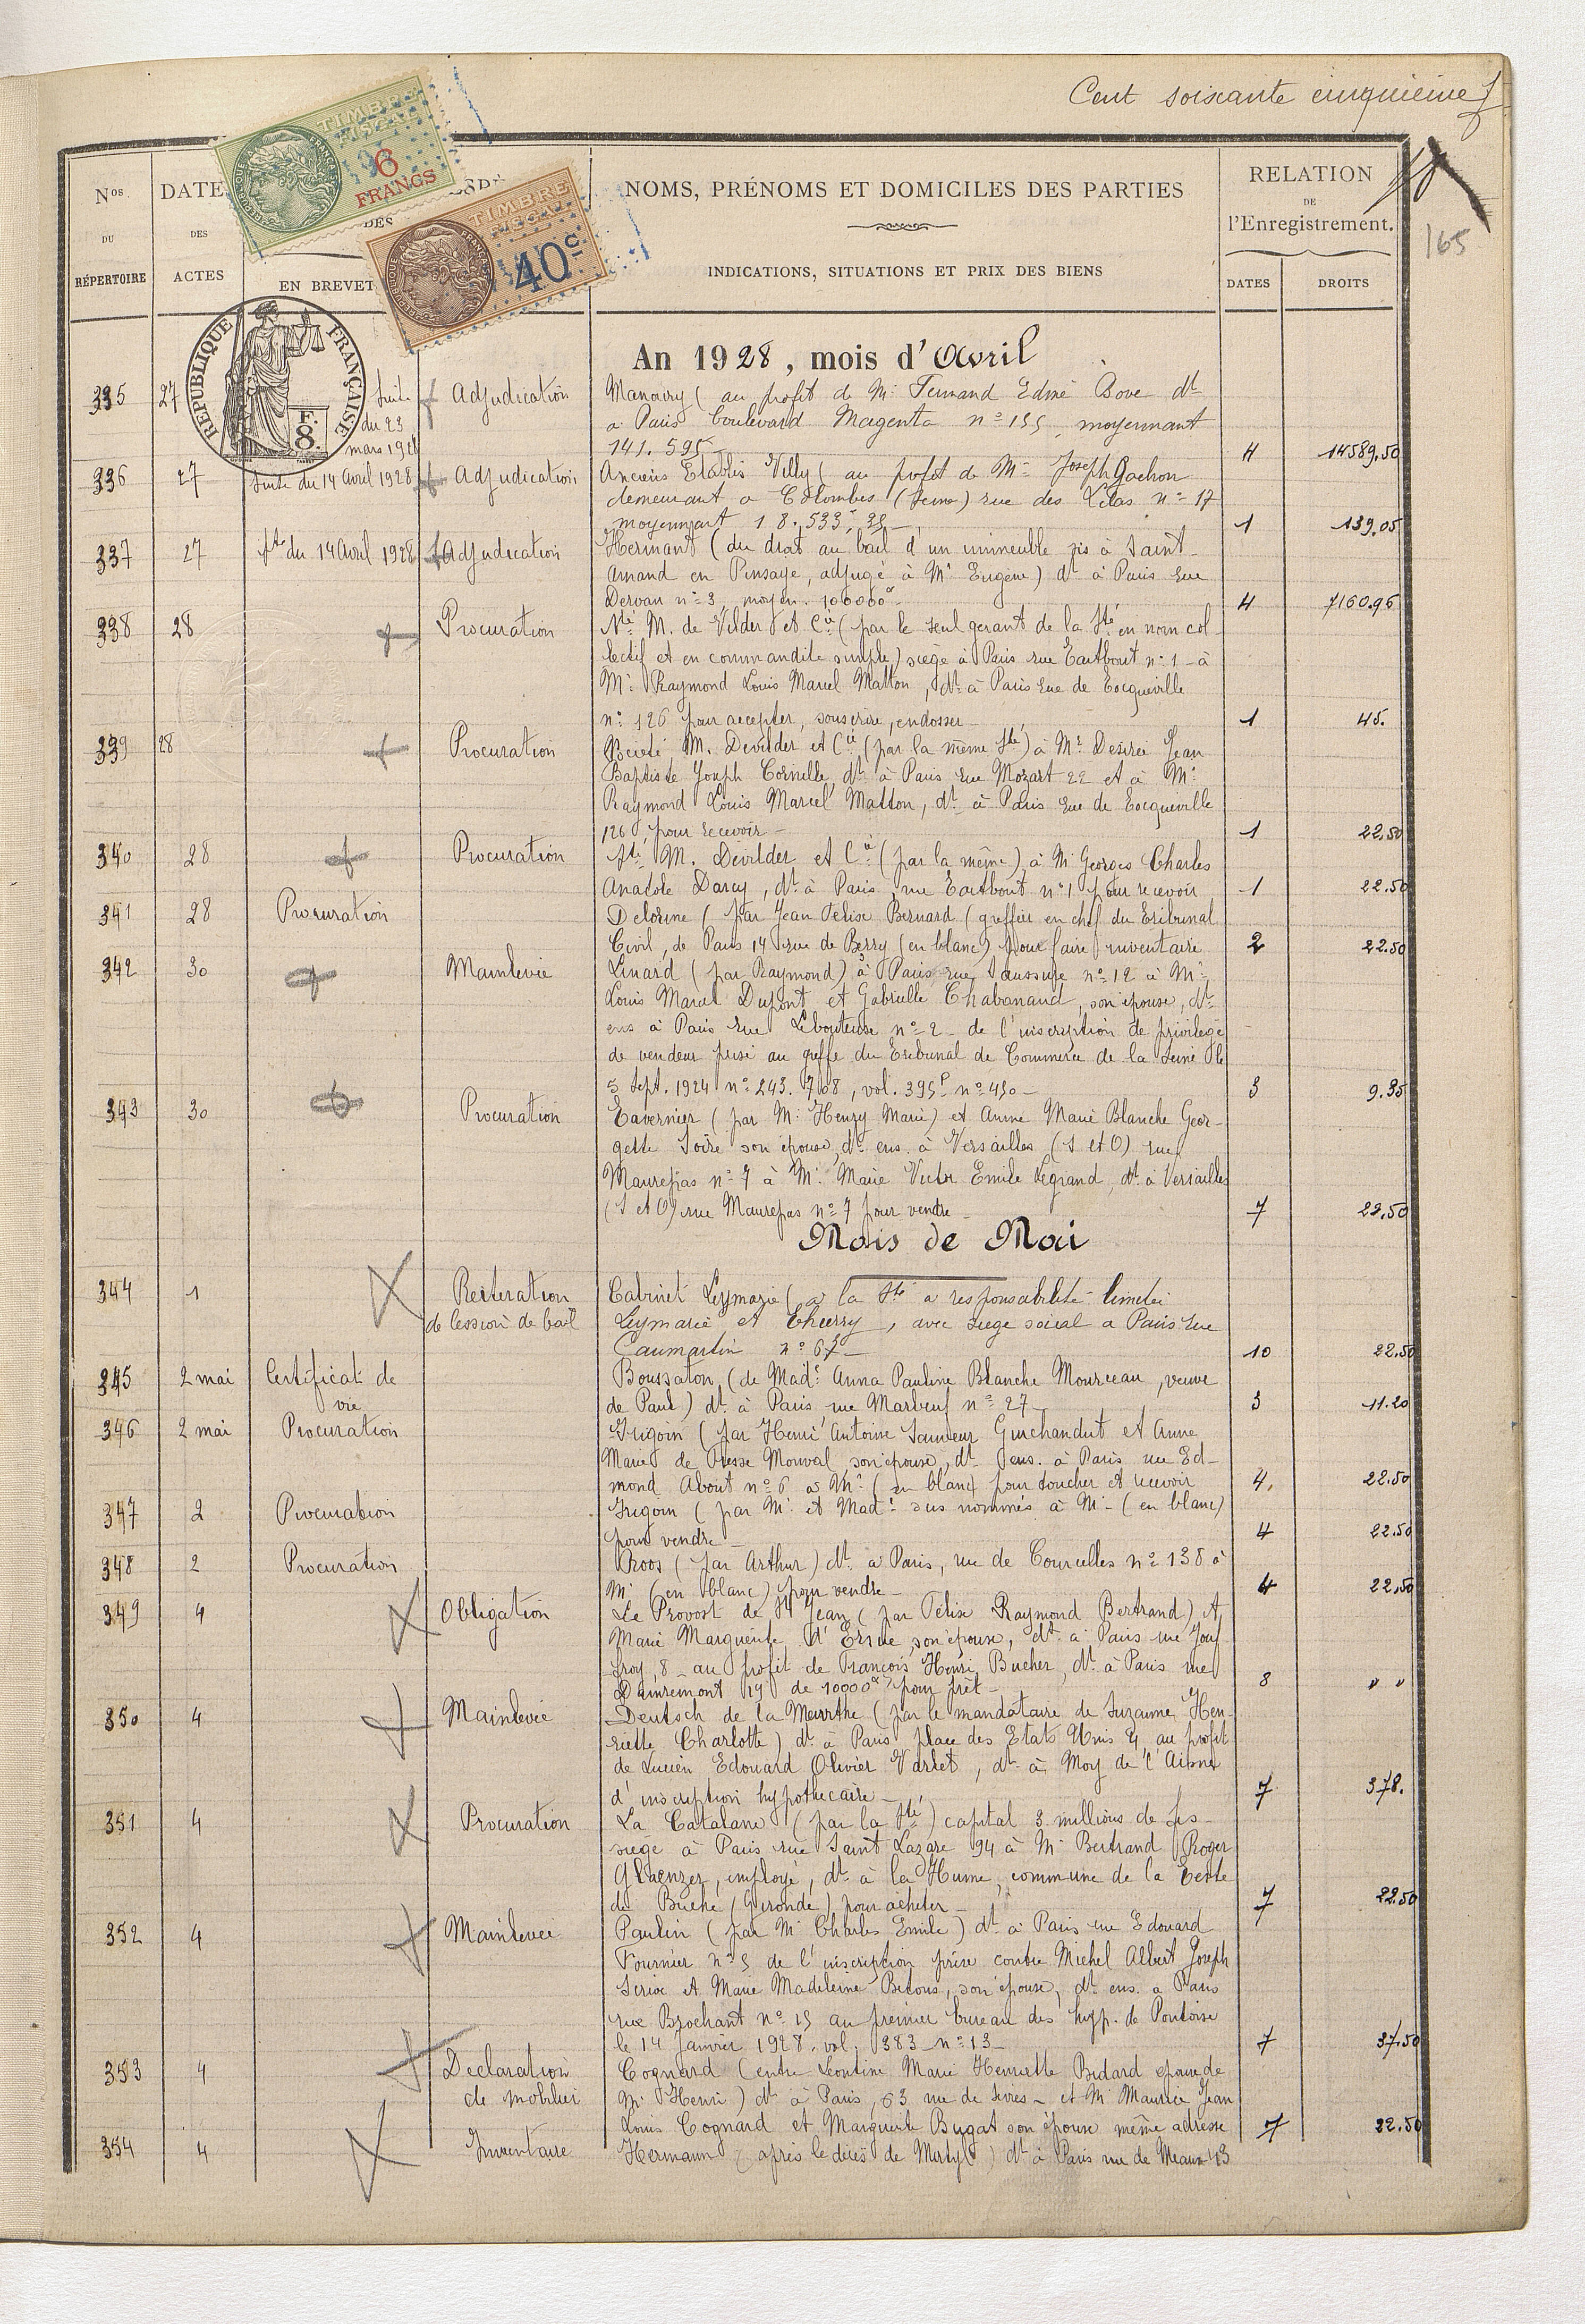 Cent soixante cinquième f
165
Nos DU RÉPERTOIRE
DATE DES ACTES
DES
EN BREVET
NOMS, PRÉNOMS ET DOMICILES DES PARTIES
INDICATIONS, SITUATIONS ET PRIX DES BIENS
RELATION DE l'Enregistrement.
DATES DROITS
TIMBRE FISCAL
6 FRANCS
TIMBRE FISCAL
40c
RÉPUBLIQUE FRANÇAISE
F. 8.
An 1928, mois d'Avril
335 27 Suite du 23 mars 1928 Adjudication Manoury ( au profit de Mr Fernand Edmé Bove dt
à Paris boulevard Magenta n° 155, moyennant
141.595 4 14589,50
336 27 Suite du 14 Avril 1928 Adjudication Anciens Etablis Villy ( au profit de Mr Joseph Gachon
demeurant a Colombes (Seine) rue des Lilas n° 17
moyennant 18.533, 35 - 1 139,05
337 27 Ste du 14 Avril 1928 Adjudication Hermant ( du droit au bail d'un immeuble sis à Saint-
Amand en Puisaye, adjugé à Mr Eugène) dt à Paris rue
n° 3, moyen. 100000 4 7160.96
338 28 Procuration Sté M. de Vilder et Cie (par le seul gerant de la Sté en nom col-
lectif et en commandite simple) siège à Paris rue Taitbout n° 1 - à
Mr Raymond Louis Marcel Matton, dt à Paris rue de Tocqueville
n° 126 pour accepter, souscrire, endosser 1 45.
339 28 Procuration Société M. Devilder et Cie (par la même Sté) à Mr Desiré Jean
Baptiste Joseph Cornille, dt à Paris rue Mozart 22 et à Mr
Raymond Louis Marcel Matton, dt à Paris rue de Tocqueville
126, pour recevoir - 1 22,50
340 28 Procuration Sté M. Devilder et Cie (par la même) à Mr Georges Charles
Anatole Darcy, dt à Paris, rue Taitbout n° 1 pour recevoir 1 22.50
341 28 Procuration Delorme ( par Jean Felix Bernard ( greffier en chef du Tribunal
Civil, de Paris 14 rue de Berry (en blanc) pour faire inventaire 2 22.50
342 30 Mainlevée Linard ( par Raymond) à Paris rue Saussure n° 12 à Mr
Louis Marcel Dupont et Gabrielle Chabanaud, son épouse, dt
ens à Paris rue Lebouteux n° 2 - de l'inscription de privilège
de vendeur prise au greffe du Tribunal de Commerce de la Seine le
5 Sept. 1924 n° 243.708, vol. 395 n° 450 - 3 9.35
343 30 Procuration Tavernier ( par Mr Henry Marie) et Anne Marie Blanche Geor-
gette son épouse, dt ens. à Versailles (S et O) rue
Maurepas n° 7 à Mr Marie Victor Emile Legrand, dt à Versailles
(S et O) rue Maurepas n° 7 pour vendre - 7 22,50
Mois de Mai
344 1 Réitération Cabinet Leymarie ( à la Sté a responsabilité limitée
de Cession de bail Leymarie et Thierry, avec siege social a Paris rue
Caumartin n° 67 - 10 22.50
345 2 mai Certificat de vie Boussaton, (de Made Anna Pauline Blanche Mourceau, veuve
de Paul) dt à Paris rue Marbeuf n° 27 3 11.20
346 2 mai Procuration Grigoin ( par Henri Antoine Sauveur Guichandut et Anne
Marie de Mouval son épouse, dt ens. à Paris rue Ed-
mond About n° 6 à Mr ( en blanc) pour toucher et recevoir 4. 22.50
347 2 Procuration Grigoin ( par Mr et Made sus nommés à Mr - (en blanc)
pour vendre - 4 22.50
348 2 Procuration Roos ( par Arthur) dt a Paris, rue de Courcelles n° 138 à
Mr (en blanc) pour vendre - 4 22,50
349 4 Obligation Le Provost de St Jean ( par Félix Raymond Bertrand) et
Marie Marguerite son épouse, dt à Paris rue Jouf-
froy, 8 - au profit de François Henri Bucher, dt à Paris rue
Damremont 19 de 10000 pour prêt - 8 " "
350 4 Mainlevée Deutsch de la Meurthe ( par le mandataire de Suzanne Hen-
riette Charlotte) dt à Paris place des Etats Unis 4, au profit
de Lucien Edouard Olivier Varlet, dt à Moy de l'Aisne
d'inscription hypothécaire - 7 378.
351 4 Procuration La Catalane ( par la Sté ) capital 3 millions de frs -
siège à Paris rue Saint Lazare 94 à Mr Bertrand Roger
Glaenzer, employé, dt à la Hume, commune de la Teste
de Buche (Gironde), pour acheter - 7 22.50
352 4 Mainlevée Paulin ( par Mr Charles Emile ) dt à Paris rue Edouard
Fournier n° 5 de l'inscription prise contre Michel Albert Joseph
et Marie Madeleine son épouse, dt ens. a Paris
rue Brochant n° 15 au premier bureau des hyp. de Pontoise
le 14 Janvier 1928. vol. 383 n° 13 - 7 37.50
353 4 Declaration Cognard (entre Leontine Marie Henriette Bidard épouse de
de mobilier Mr Henri ) dt à Paris, 63 rue de Sèvres - et Mr Maurice Jean
Louis Cognard et Marguerite Bugat son épouse même adresse 7 22.50
354 4 Inventaire Hermann ( après le décès de ) dt à Paris rue de Meaux 43